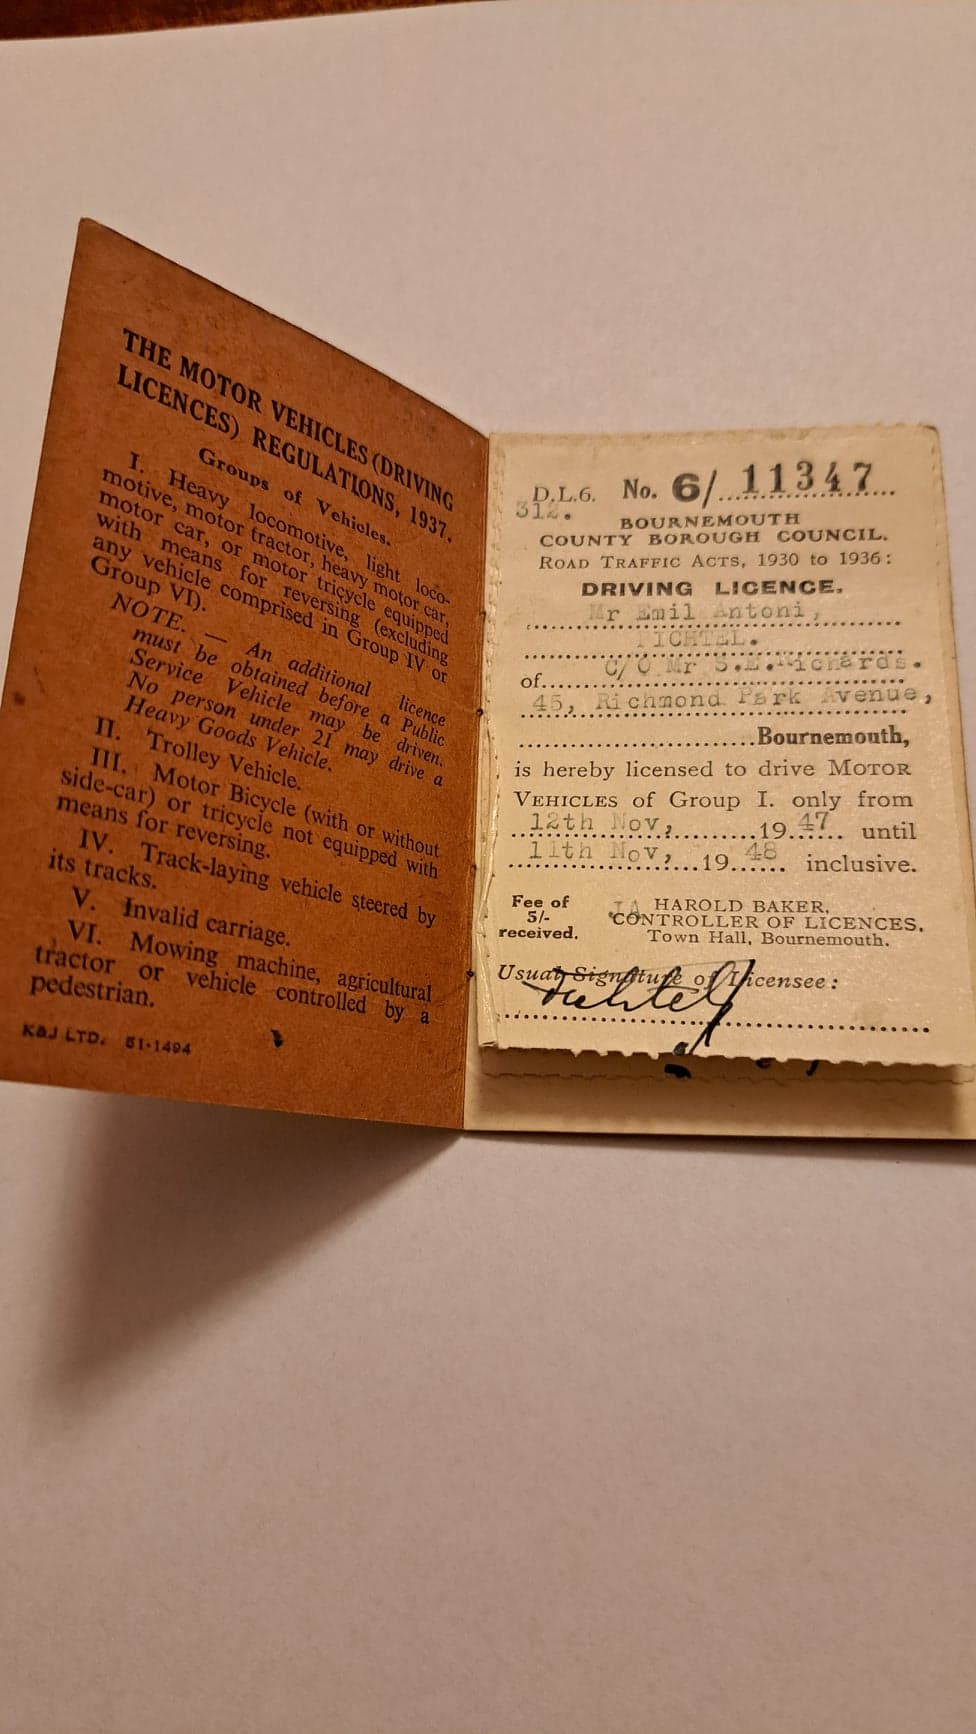 THE MOTOR VEHICLES (DRIVING
LICENCES) REGULATIONS, 1937.
Groups of Vehicles.
I. Heavy locomotive, light loco-
motive, motor tractor, heavy motor car,
motor car, or motor tricycle equipped
with means for reversing (excluding
any vehicle comprised in Group IV or
Group VI).
NOTE. — An additional licence
must be obtained before a Public
Service Vehicle may be driven.
No person under 21 may drive a
Heavy Goods Vehicle.
II. Trolley Vehicle.
III. Motor Bicycle (with or without
side-car) or tricycle not equipped with
means for reversing.
IV. Track-laying vehicle steered by
its tracks.
V. Invalid carriage.
VI. Mowing machine, agricultural
tractor or vehicle controlled by a
pedestrian.
K&J LTD. 51-1494
D.L.6. No. 6/ 11347
312.
BOURNEMOUTH
COUNTY BOROUGH COUNCIL.
ROAD TRAFFIC ACTS, 1930 to 1936:
DRIVING LICENCE.
Mr Emil Antoni,
C/O Mr S.E.Richards.
of
45, Richmond Park Avenue,
Bournemouth,
is hereby licensed to drive MOTOR
VEHICLES of Group I. only from
12th Nov, 19 47 until
11th Nov, 19 48 inclusive.
Fee of
5/-
received.
HAROLD BAKER,
CONTROLLER OF LICENCES,
Town Hall, Bournemouth.
Usual Signature of Licensee: